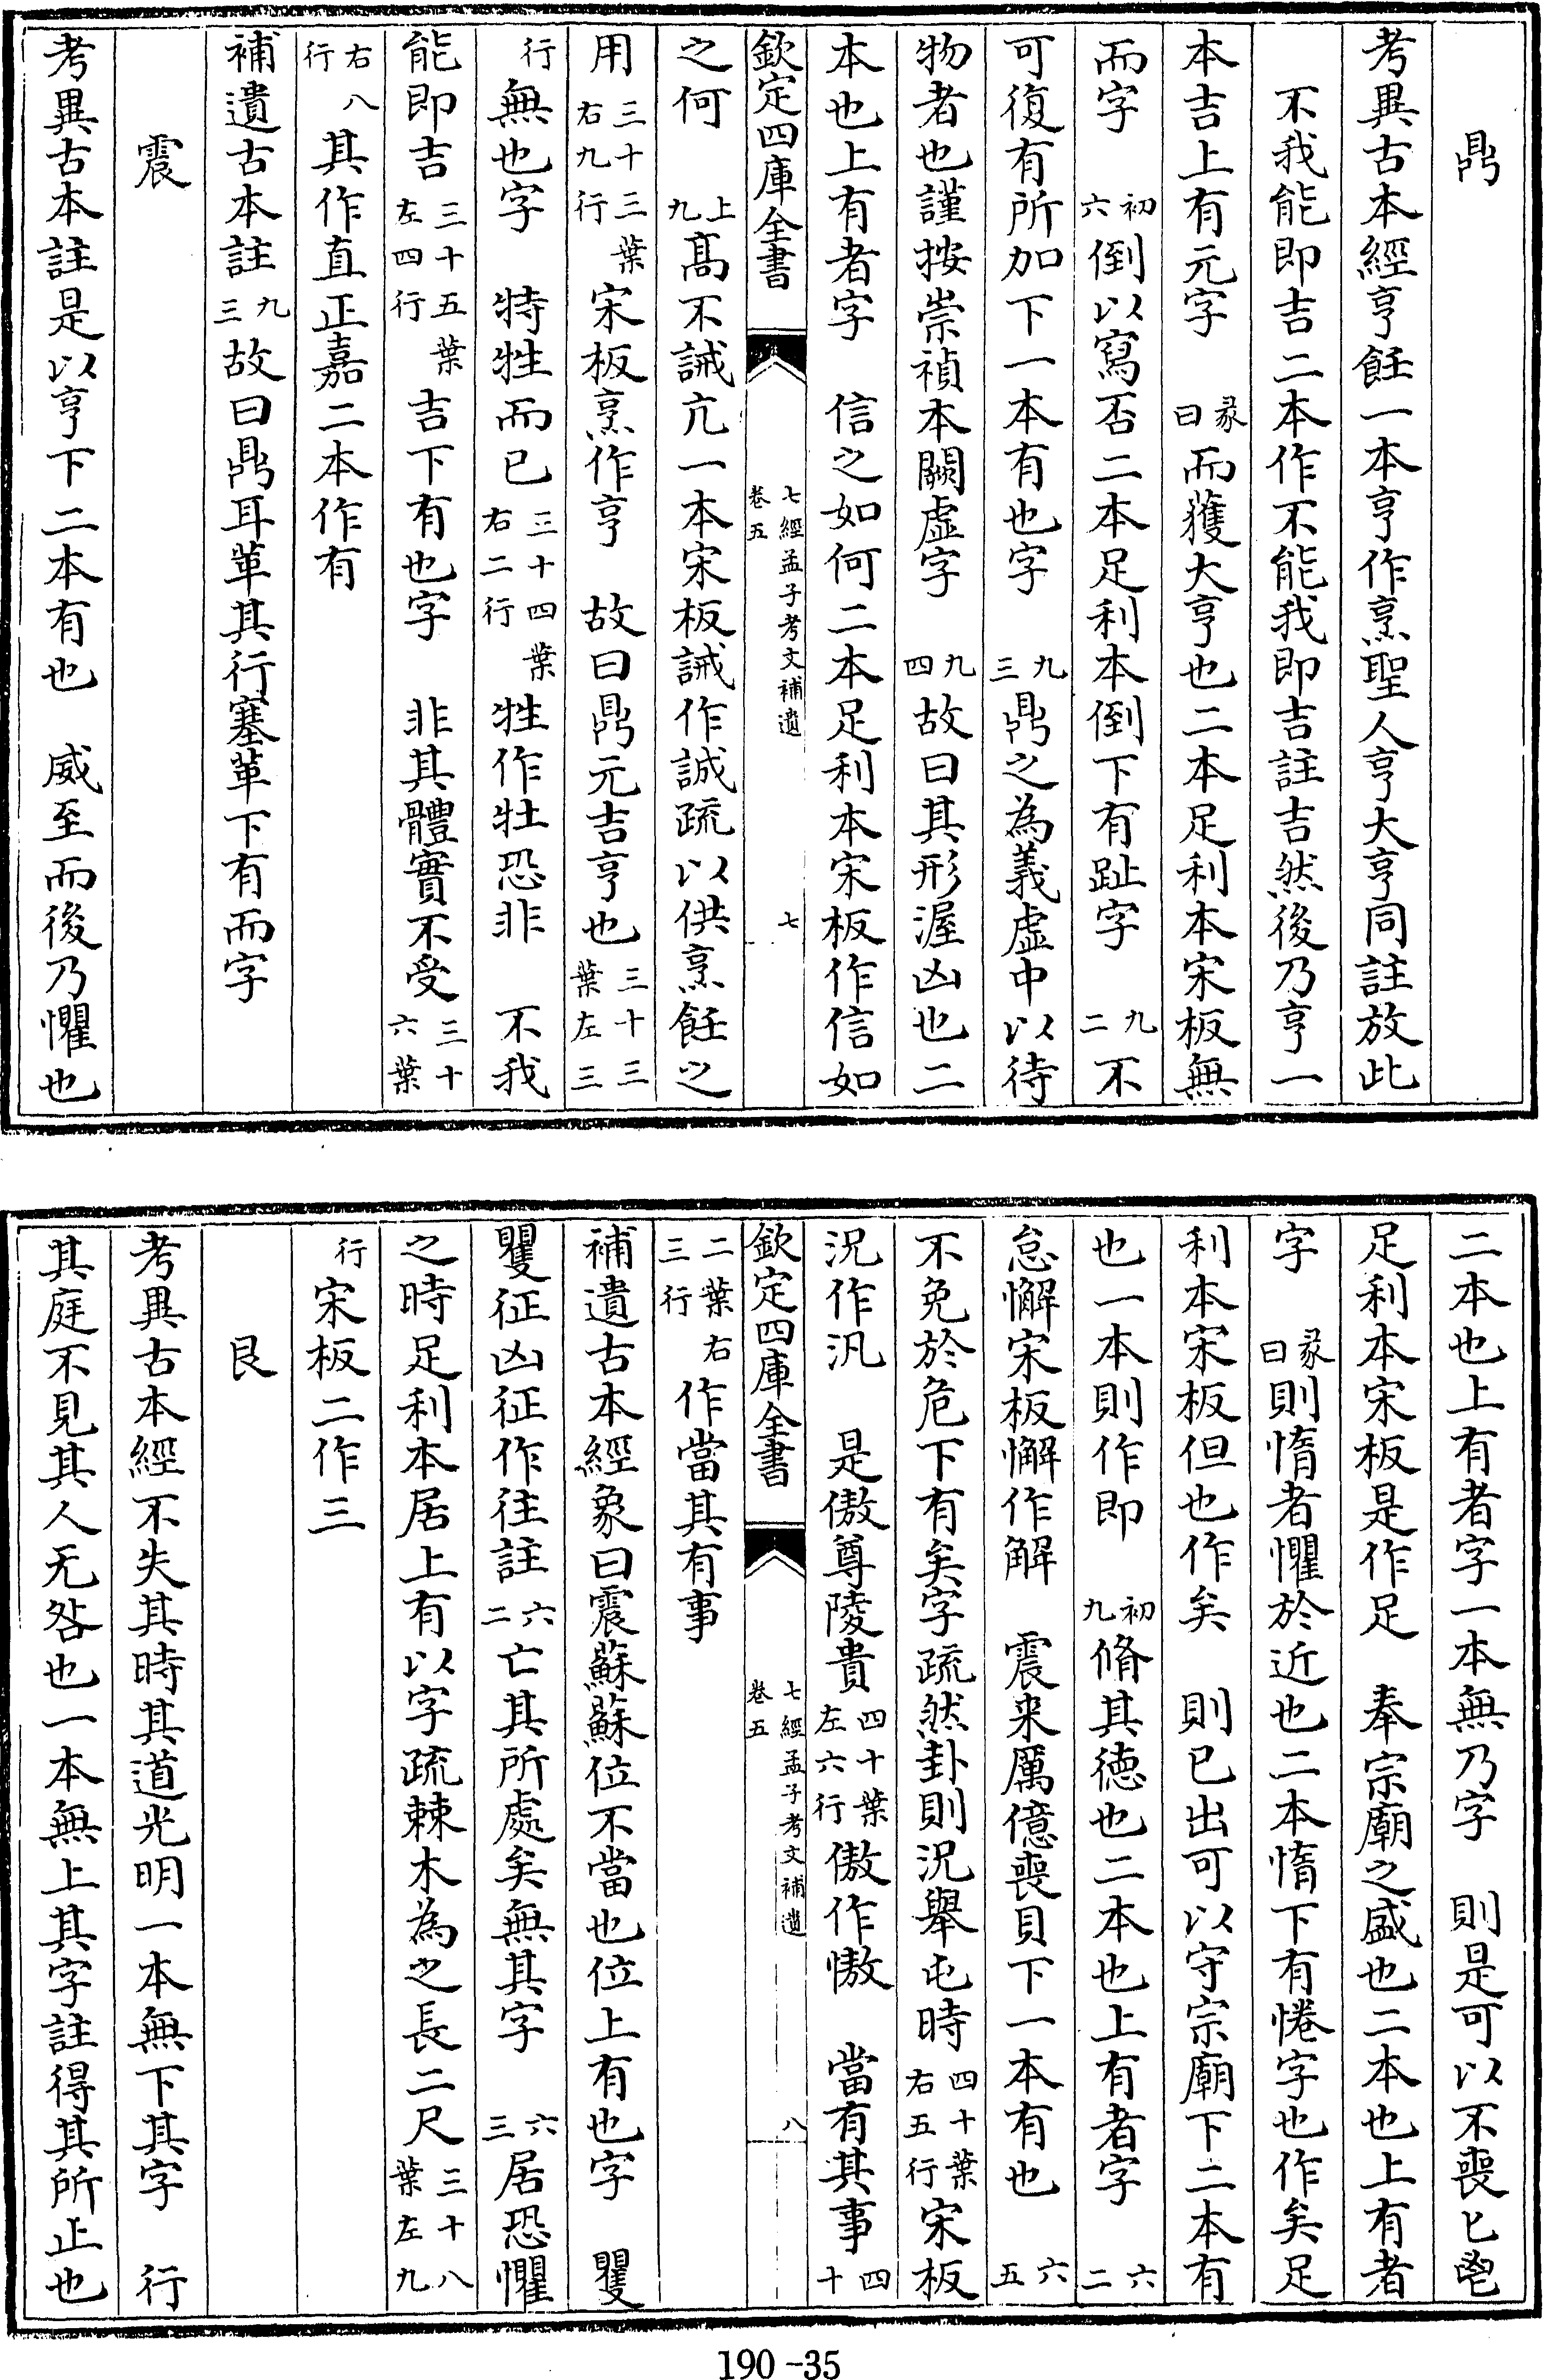 鼎
考異古本經亨飪一本亨作烹聖人亨大亨同註放此
不我能即吉二本作不能我即吉註吉然後乃亨一
本吉上有元字彖曰而獲大亨也二本足利本宋板無
而字初六倒以寫否二本足利本倒下有趾字九二不
可復有所加下一本有也字九三鼎之為義虛中以待
物者也謹按崇禎本闕虛字九四故曰其形渥凶也二
本也上有者字信之如何二本足利本宋板作信如
欽定四庫全書 七經孟子考文補遺 卷五 七
之何上九高不誡亢一本宋板誡作誠疏以供烹飪之
用三十三葉右九行宋板烹作亨故曰鼎元吉亨也三十三葉左三
行無也字特牲而已三十四葉右二行牲作牡恐非不我
能即吉三十五葉左四行吉下有也字非其體實不受三十六葉
右八行其作直正嘉二本作有
補遺古本註九三故曰鼎耳革其行塞革下有而字
震
考異古本註是以亨下二本有也威至而後乃懼也
二本也上有者字一本無乃字則是可以不喪匕鬯
足利本宋板是作足奉宗廟之盛也二本也上有者
字彖曰則惰者懼於近也二本惰下有惓字也作矣足
利本宋板但也作矣則已出可以守宗廟下二本有
也一本則作即初九脩其德也二本也上有者字六二
怠懈宋板懈作解震來厲億喪貝下一本有也六五
不免於危下有矣字疏然卦則況舉屯時四十葉右五行宋板
況作汎是傲尊陵貴四十葉左六行傲作憿當有其事四十
欽定四庫全書 七經孟子考文補遺 卷五 八
二葉右三行作當其有事
補遺古本經象曰震蘇蘇位不當也位上有也字矍
矍征凶征作往註六二亡其所處矣無其字六三居恐懼
之時足利本居上有以字疏棘木為之長二尺三十八葉左九
行宋板二作三
艮
考異古本經不失其時其道光明一本無下其字行
其庭不見其人无咎也一本無上其字註得其所止也
190-35